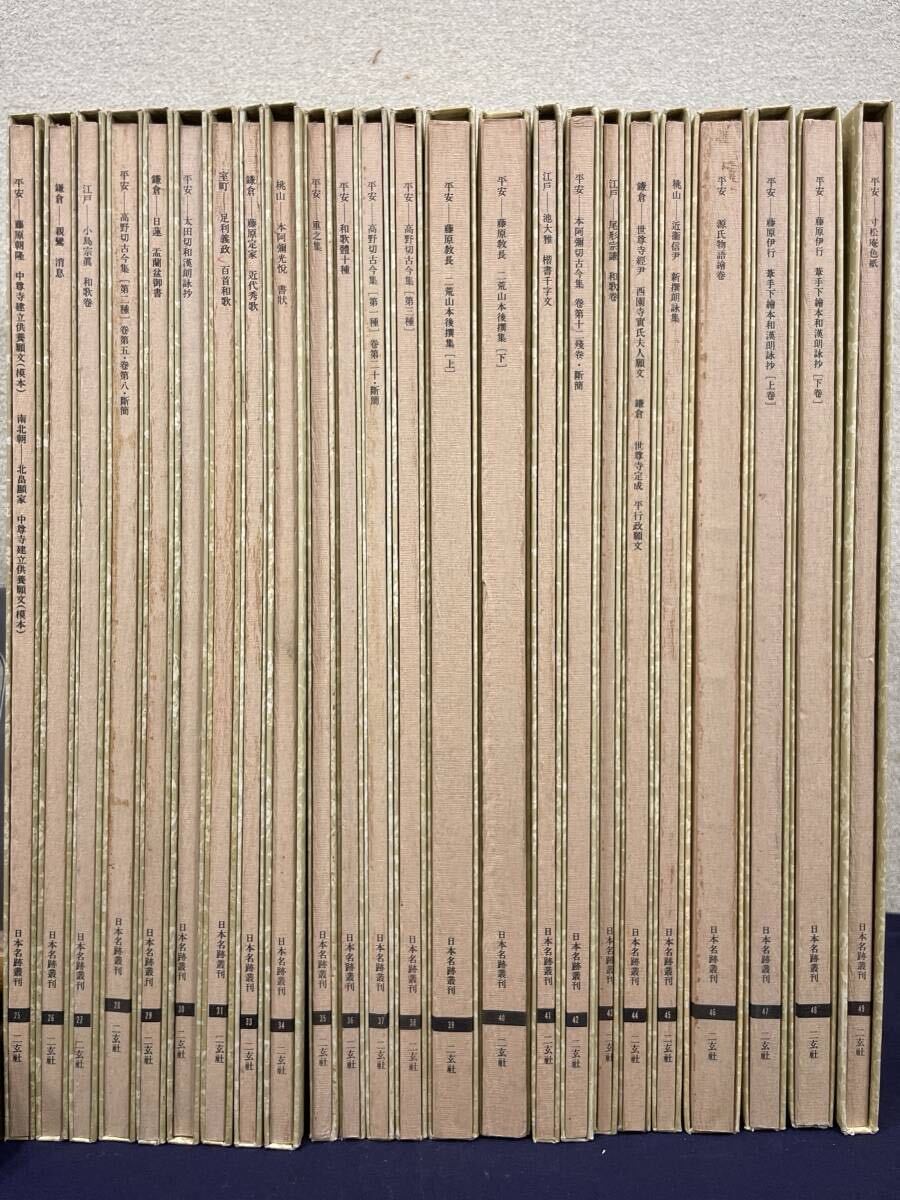 平安――藤原朝隆 中尊寺建立供養願文(模本) 南北朝――北畠顯家 中尊寺建立供養願文(模本) 日本名跡叢刊 25 二玄社
鎌倉――親鸞 消息 日本名跡叢刊 26 二玄社
江戸――小島宗眞 和歌卷 日本名跡叢刊 27 二玄社
平安――高野切古今集[第二種]卷第五・卷第八・斷簡 日本名跡叢刊 28 二玄社
鎌倉――日蓮 盂蘭盆御書 日本名跡叢刊 29 二玄社
平安――太田切和漢朗詠抄 日本名跡叢刊 30 二玄社
室町――足利義政 百首和歌 日本名跡叢刊 31 二玄社
鎌倉――藤原定家 近代秀歌 日本名跡叢刊 33 二玄社
桃山――本阿彌光悦 書狀 日本名跡叢刊 34 二玄社
平安――重之集 日本名跡叢刊 35 二玄社
平安――和歌體十種 日本名跡叢刊 36 二玄社
平安――高野切古今集[第一種]卷第二十・斷簡 日本名跡叢刊 37 二玄社
平安――高野切古今集[第三種] 日本名跡叢刊 38 二玄社
平安――藤原教長 二荒山本後撰集[上] 日本名跡叢刊 39 二玄社
平安――藤原教長 二荒山本後撰集[下] 日本名跡叢刊 40 二玄社
江戸――池大雅 楷書千字文 日本名跡叢刊 41 二玄社
平安――本阿彌切古今集 卷第十一殘卷・斷簡 日本名跡叢刊 42 二玄社
江戸――尾形宗謙 和歌卷 日本名跡叢刊 43 二玄社
鎌倉――世尊寺經尹 西園寺實氏夫人願文 鎌倉――世尊寺定成 平行政願文 日本名跡叢刊 44 二玄社
桃山――近衞信尹 新撰朗詠集 日本名跡叢刊 45 二玄社
平安――源氏物語繪卷 日本名跡叢刊 46 二玄社
平安――藤原伊行 葦手下繪本和漢朗詠抄[上卷] 日本名跡叢刊 47 二玄社
平安――藤原伊行 葦手下繪本和漢朗詠抄[下卷] 日本名跡叢刊 48 二玄社
平安――寸松庵色紙 日本名跡叢刊 49 二玄社